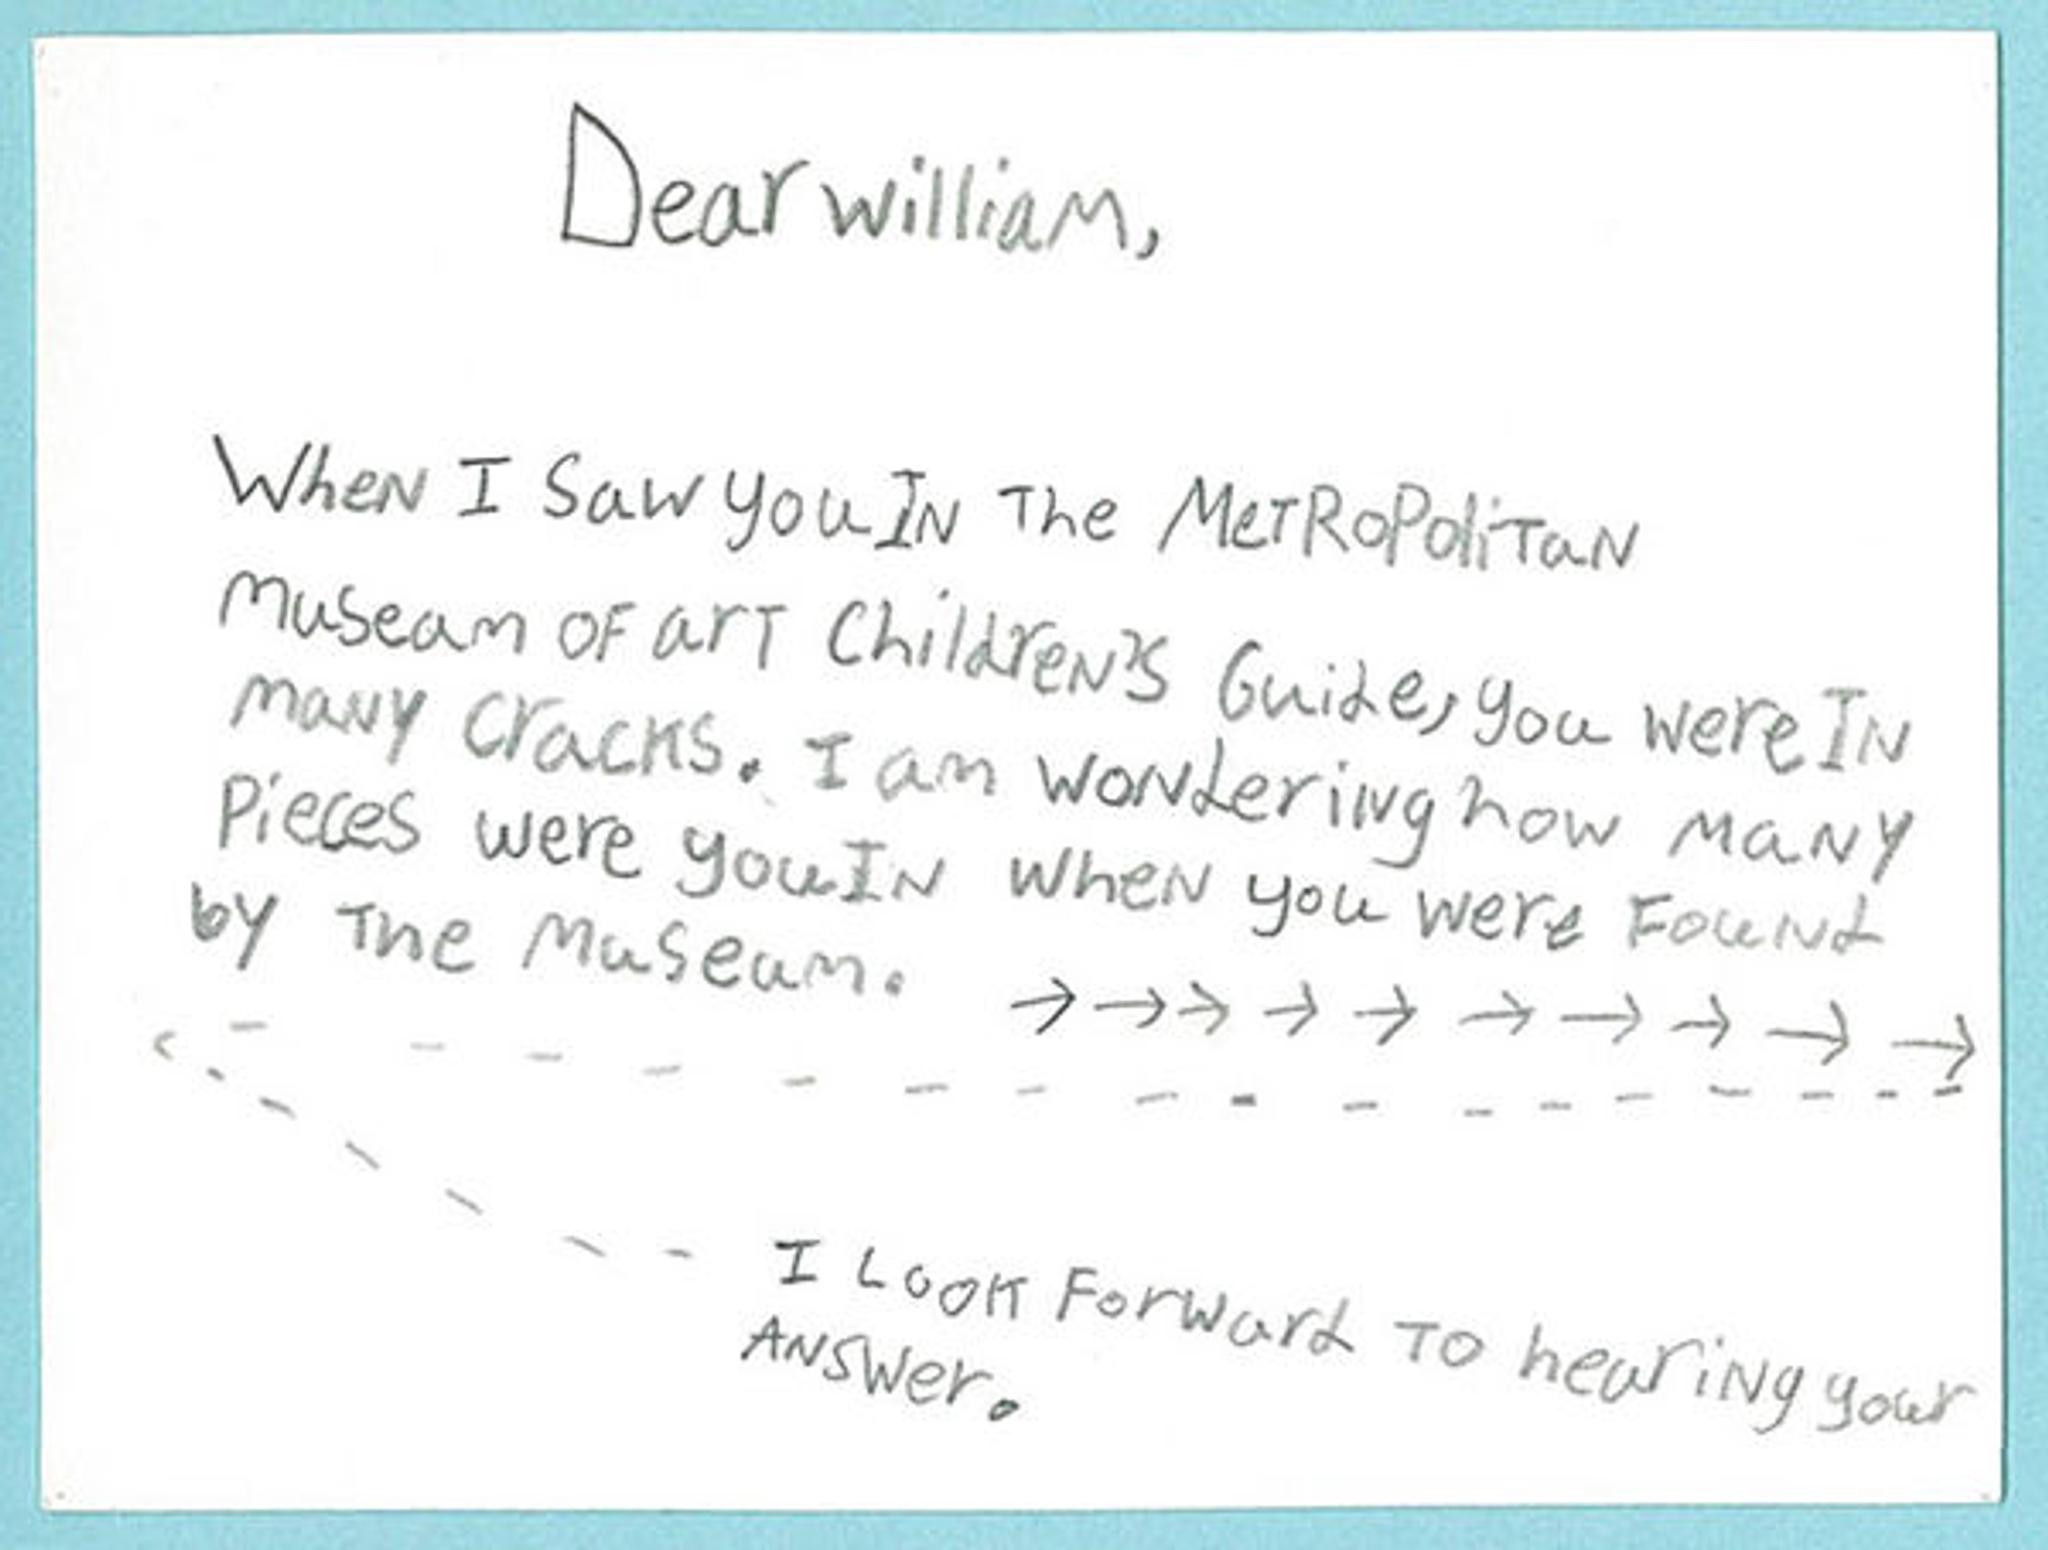 Dear william,
When I Saw you IN The MeTRoPoliTaN
Museam OF arT Children's Guide, you were IN
many cracks. I am wondering how many
Pieces were you IN when you were Found
by The Museam. → → → → → → → → → →
I Look Forward To hearing your
ANSwer.